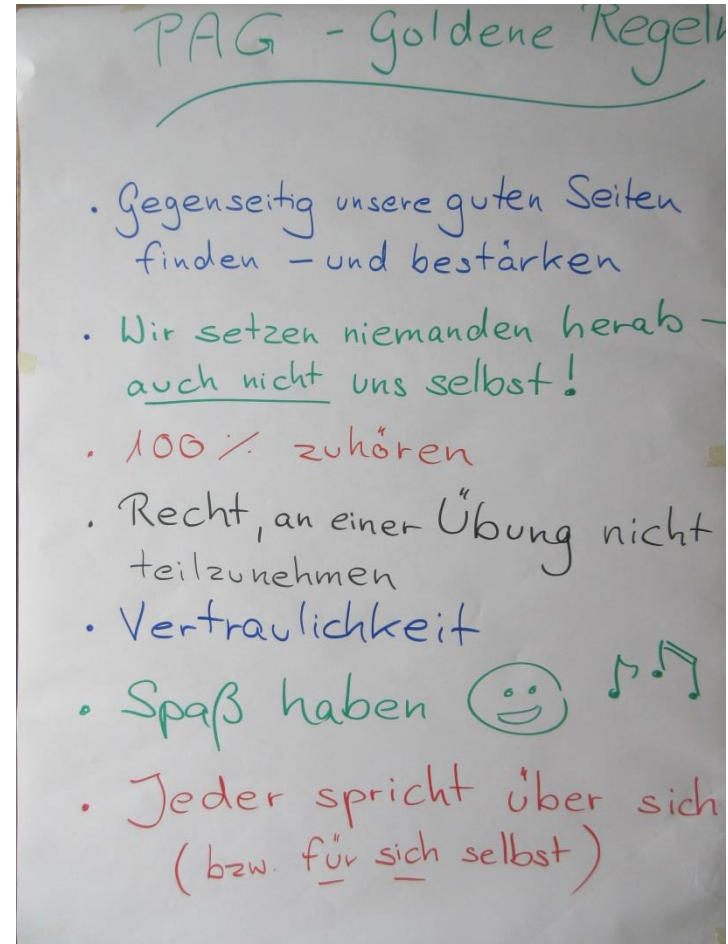 PAG - Goldene Regeln
• Gegenseitig unsere guten Seiten
finden - und bestärken
• Wir setzen niemanden herab -
auch nicht uns selbst!
• 100% zuhören
• Recht, an einer Übung nicht
teilzunehmen
• Vertraulichkeit
• Spaß haben
• Jeder spricht über sich
(bzw. für sich selbst)